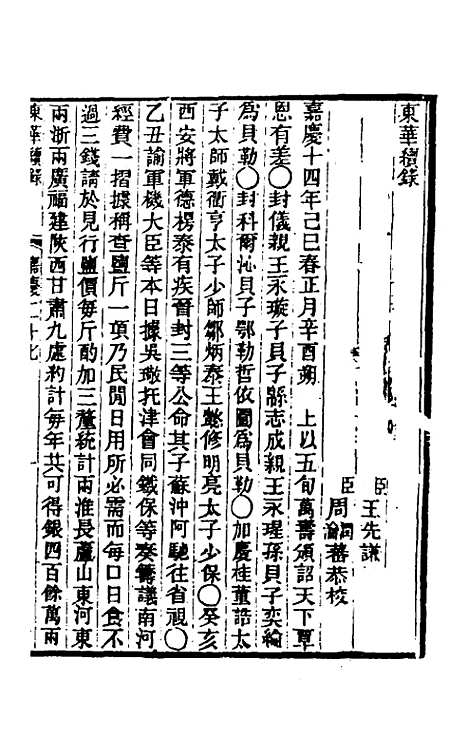 東華續錄
臣王先謙
臣周潤蕃
周瀹蕃恭校
嘉慶十四年己巳春正月辛酉朔　上以五旬萬壽頒詔天下覃
恩有差〇封儀親王永璇子貝子緜志成親王永瑆孫貝子奕綸
爲貝勒〇封科爾沁貝子鄂勒哲依圖爲貝勒〇加慶桂董誥太
子太師戴衢亨太子少師鄒炳泰王懿修明亮太子少保〇癸亥
西安將軍德楞泰有疾晉封三等公命其子蘇沖阿馳往省視〇
乙丑諭軍機大臣等本日據吳璥托津會同鐵保等奏籌議南河
經費一摺據稱查鹽斤一項乃民間日用所必需而每口日食不
過三錢請於見行鹽價每斤酌加三釐統計兩淮長蘆山東河東
兩浙兩廣福建陝西甘肅九處約計每年共可得銀四百餘萬兩
東華續錄　嘉慶二十七　一